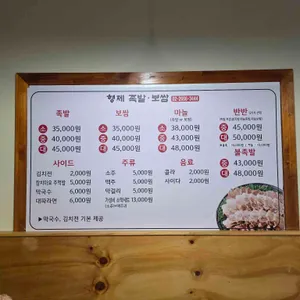 형제 족발·보쌈
족발
소 35,000원
중 40,000원
대 45,000원
보쌈
소 35,000원
중 40,000원
대 45,000원
마늘
(족발 or 보쌈)
소 38,000원
중 43,000원
대 48,000원
반반
중 45,000원
대 50,000원
불족발
중 43,000원
대 48,000원
사이드
김치전 2,000원
주먹밥 5,000원
막국수 6,000원
대파라면 6,000원
주류
소주 5,000원
맥주 5,000원
막걸리 5,000원
13,000원
음료
콜라 2,000원
사이다 2,000원
▶막국수, 김치전 기본 제공